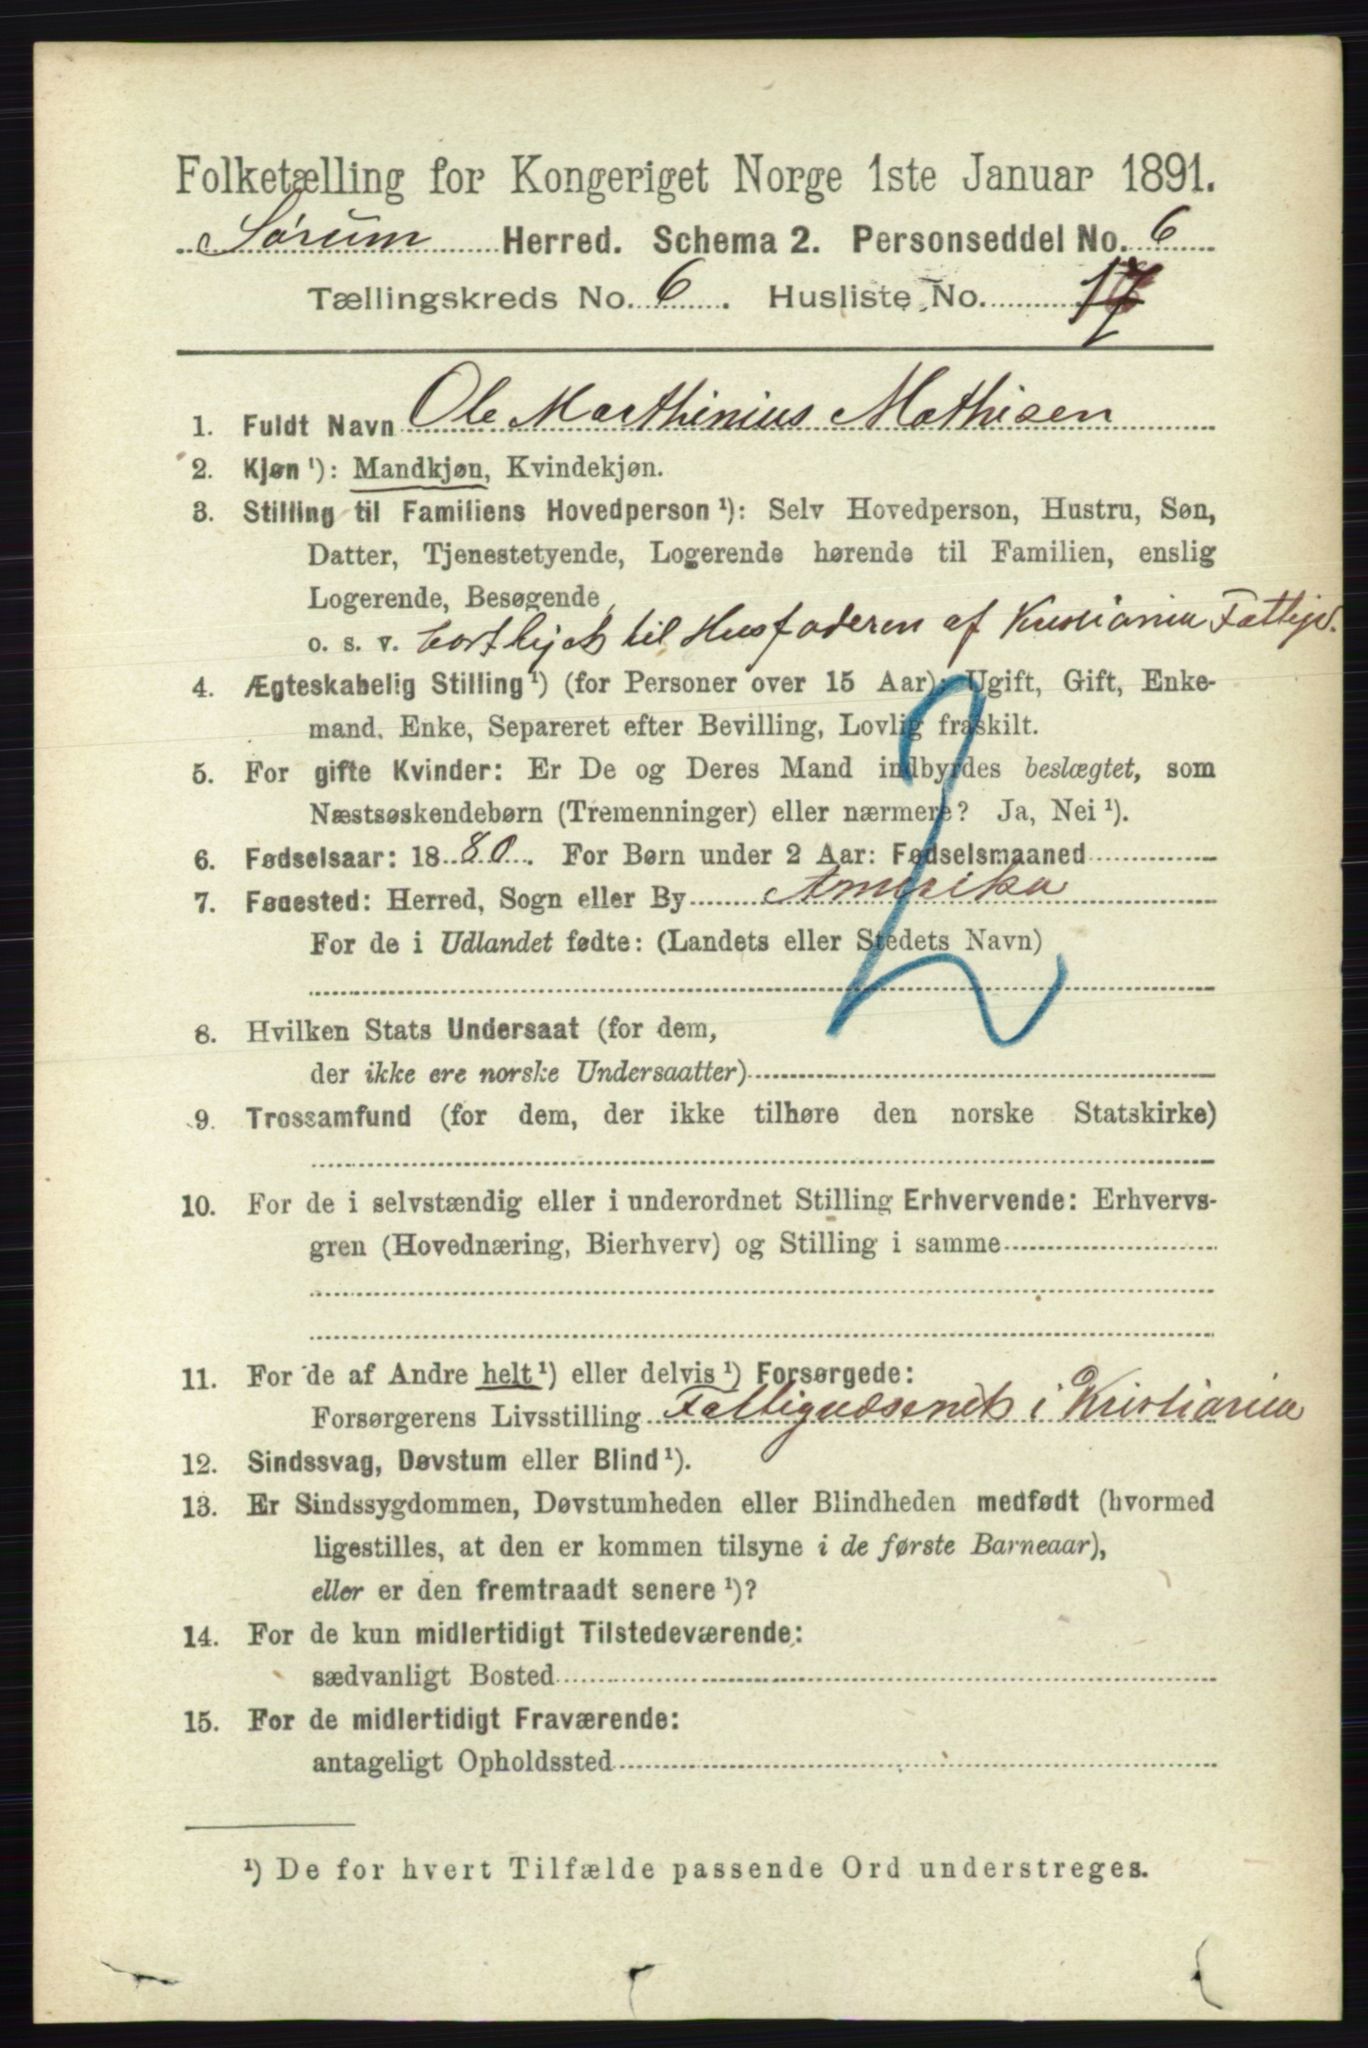 Folketælling for Kongeriget Norge 1ste Januar 1891.
Sørum Herred. Schema 2. Personseddel No. 6
Tællingskreds No. 6. Husliste No. 17
1. Fuldt Navn Ole Marthinius Mathisen
2. Kjøn ¹): Mandkjøn, Kvindekjøn.
3. Stilling til Familiens Hovedperson ¹): Selv Hovedperson, Hustru, Søn,
Datter, Tjenestetyende, Logerende hørende til Familien, enslig
Logerende, Besøgende
o. s. v. bortlejet til Husfaderen af Kristiania Fattigv.
4. Ægteskabelig Stilling ¹) (for Personer over 15 Aar): Ugift, Gift, Enke-
mand, Enke, Separeret efter Bevilling, Lovlig fraskilt.
5. For gifte Kvinder: Er De og Deres Mand indbyrdes beslægtet, som
Næstsøskendebørn (Tremenninger) eller nærmere? Ja, Nei ¹).
6. Fødselsaar: 1880. For Børn under 2 Aar: Fødselsmaaned
7. Fødested: Herred, Sogn eller By Amerika
For de i Udlandet fødte: (Landets eller Stedets Navn)
2
8. Hvilken Stats Undersaat (for dem,
der ikke ere norske Undersaatter)
9. Trossamfund (for dem, der ikke tilhøre den norske Statskirke)
10. For de i selvstændig eller i underordnet Stilling Erhvervende: Erhvervs-
gren (Hovednæring, Bierhverv) og Stilling i samme
11. For de af Andre helt ¹) eller delvis ¹) Forsørgede:
Forsørgerens Livsstilling Fattigvæsenet i Kristiania
12. Sindssvag, Døvstum eller Blind ¹).
13. Er Sindssygdommen, Døvstumheden eller Blindheden medfødt (hvormed
ligestilles, at den er kommen tilsyne i de første Barneaar),
eller er den fremtraadt senere ¹)?
14. For de kun midlertidigt Tilstedeværende:
sædvanligt Bosted
15. For de midlertidigt Fraværende:
antageligt Opholdssted
¹) De for hvert Tilfælde passende Ord understreges.